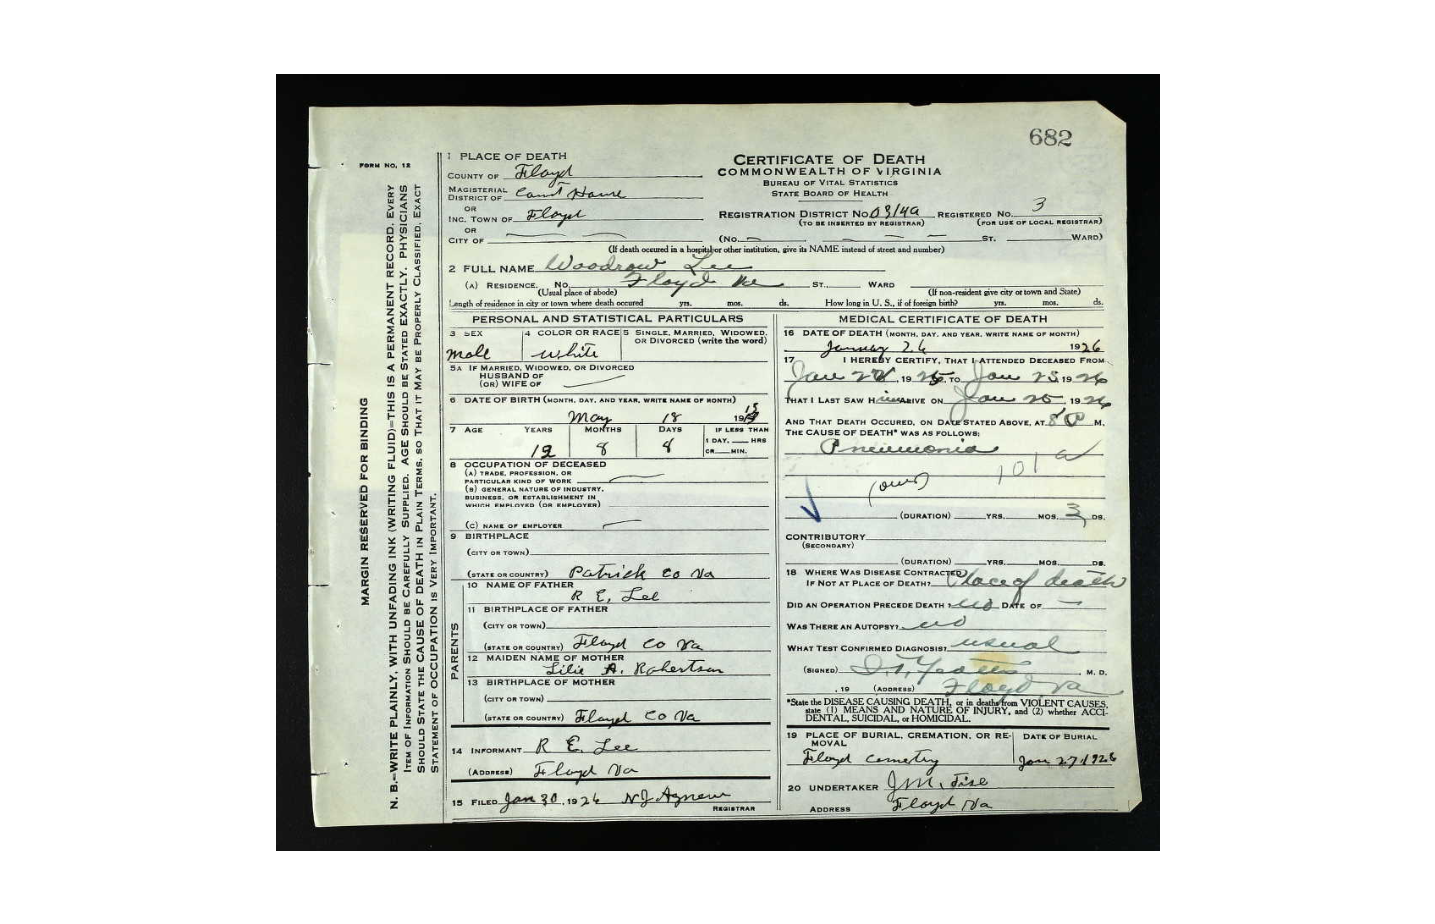 682
FORM NO. 12
MARGIN RESERVED FOR BINDING
N. B.—WRITE PLAINLY, WITH UNFADING INK (WRITING FLUID)—THIS IS A PERMANENT RECORD. EVERY
ITEM OF INFORMATION SHOULD BE CAREFULLY SUPPLIED. AGE SHOULD BE STATED EXACTLY. PHYSICIANS
SHOULD STATE THE CAUSE OF DEATH IN PLAIN TERMS, SO THAT IT MAY BE PROPERLY CLASSIFIED. EXACT
STATEMENT OF OCCUPATION IS VERY IMPORTANT.
1 PLACE OF DEATH
COUNTY OF Floyd
MAGISTERIAL
DISTRICT OF Court House
OR
INC. TOWN OF Floyd
OR
CITY OF
CERTIFICATE OF DEATH
COMMONWEALTH OF VIRGINIA
BUREAU OF VITAL STATISTICS
STATE BOARD OF HEALTH
REGISTRATION DISTRICT NO. REGISTERED NO. 3
(TO BE INSERTED BY REGISTRAR) (FOR USE OF LOCAL REGISTRAR)
(No. ST. WARD)
(If death occured in a hospital or other institution, give its NAME instead of street and number)
2 FULL NAME Woodrow Lee
(A) RESIDENCE. No. Floyd ST. WARD
(Usual place of abode) (If non-resident give city or town and State)
Length of residence in city or town where death occured yrs. mos. ds. How long in U. S., if of foreign birth? yrs. mos. ds.
PERSONAL AND STATISTICAL PARTICULARS
3 SEX 4 COLOR OR RACE 5 SINGLE, MARRIED, WIDOWED,
OR DIVORCED (write the word)
male white
5A IF MARRIED, WIDOWED, OR DIVORCED
HUSBAND OF
(OR) WIFE OF
6 DATE OF BIRTH (MONTH, DAY, AND YEAR, WRITE NAME OF MONTH)
May 18 19
7 AGE YEARS MONTHS DAYS IF LESS THAN
1 DAY, HRS
OR MIN.
12 8 8
8 OCCUPATION OF DECEASED
(A) TRADE, PROFESSION, OR
PARTICULAR KIND OF WORK
(B) GENERAL NATURE OF INDUSTRY,
BUSINESS, OR ESTABLISHMENT IN
WHICH EMPLOYED (OR EMPLOYER)
(C) NAME OF EMPLOYER
9 BIRTHPLACE
(CITY OR TOWN)
(STATE OR COUNTRY) Patrick Co Va
PARENTS
10 NAME OF FATHER
R E, Lee
11 BIRTHPLACE OF FATHER
(CITY OR TOWN)
(STATE OR COUNTRY) Floyd Co Va
12 MAIDEN NAME OF MOTHER
Lilie A. Robertson
13 BIRTHPLACE OF MOTHER
(CITY OR TOWN)
(STATE OR COUNTRY) Floyd Co Va
14 INFORMANT R E. Lee
(ADDRESS) Floyd Va
15 FILED Jan 30, 1926 N.J. Agnew
REGISTRAR
MEDICAL CERTIFICATE OF DEATH
16 DATE OF DEATH (MONTH, DAY, AND YEAR, WRITE NAME OF MONTH)
January 26 1926
17 I HEREBY CERTIFY, THAT I ATTENDED DECEASED FROM
Jan 19 TO Jan 25 1926
THAT I LAST SAW H ALIVE ON Jan 25, 1926
AND THAT DEATH OCCURED, ON DATE STATED ABOVE, AT 8 P M.
THE CAUSE OF DEATH* WAS AS FOLLOWS:
Pneumonia
101a
(over)
(DURATION) YRS. MOS. 3 DS.
CONTRIBUTORY
(SECONDARY)
(DURATION) YRS. MOS. DS.
18 WHERE WAS DISEASE CONTRACTED
IF NOT AT PLACE OF DEATH? Place of death
DID AN OPERATION PRECEDE DEATH? no DATE OF
WAS THERE AN AUTOPSY? no
WHAT TEST CONFIRMED DIAGNOSIS? usual
(SIGNED) M. D.
, 19 (ADDRESS) Floyd Va
*State the DISEASE CAUSING DEATH, or in deaths from VIOLENT CAUSES,
state (1) MEANS AND NATURE OF INJURY, and (2) whether ACCI-
DENTAL, SUICIDAL, or HOMICIDAL.
19 PLACE OF BURIAL, CREMATION, OR RE-
MOVAL
DATE OF BURIAL
Floyd cemetry Jan 27 1926
20 UNDERTAKER J.M. Tise
ADDRESS Floyd Va